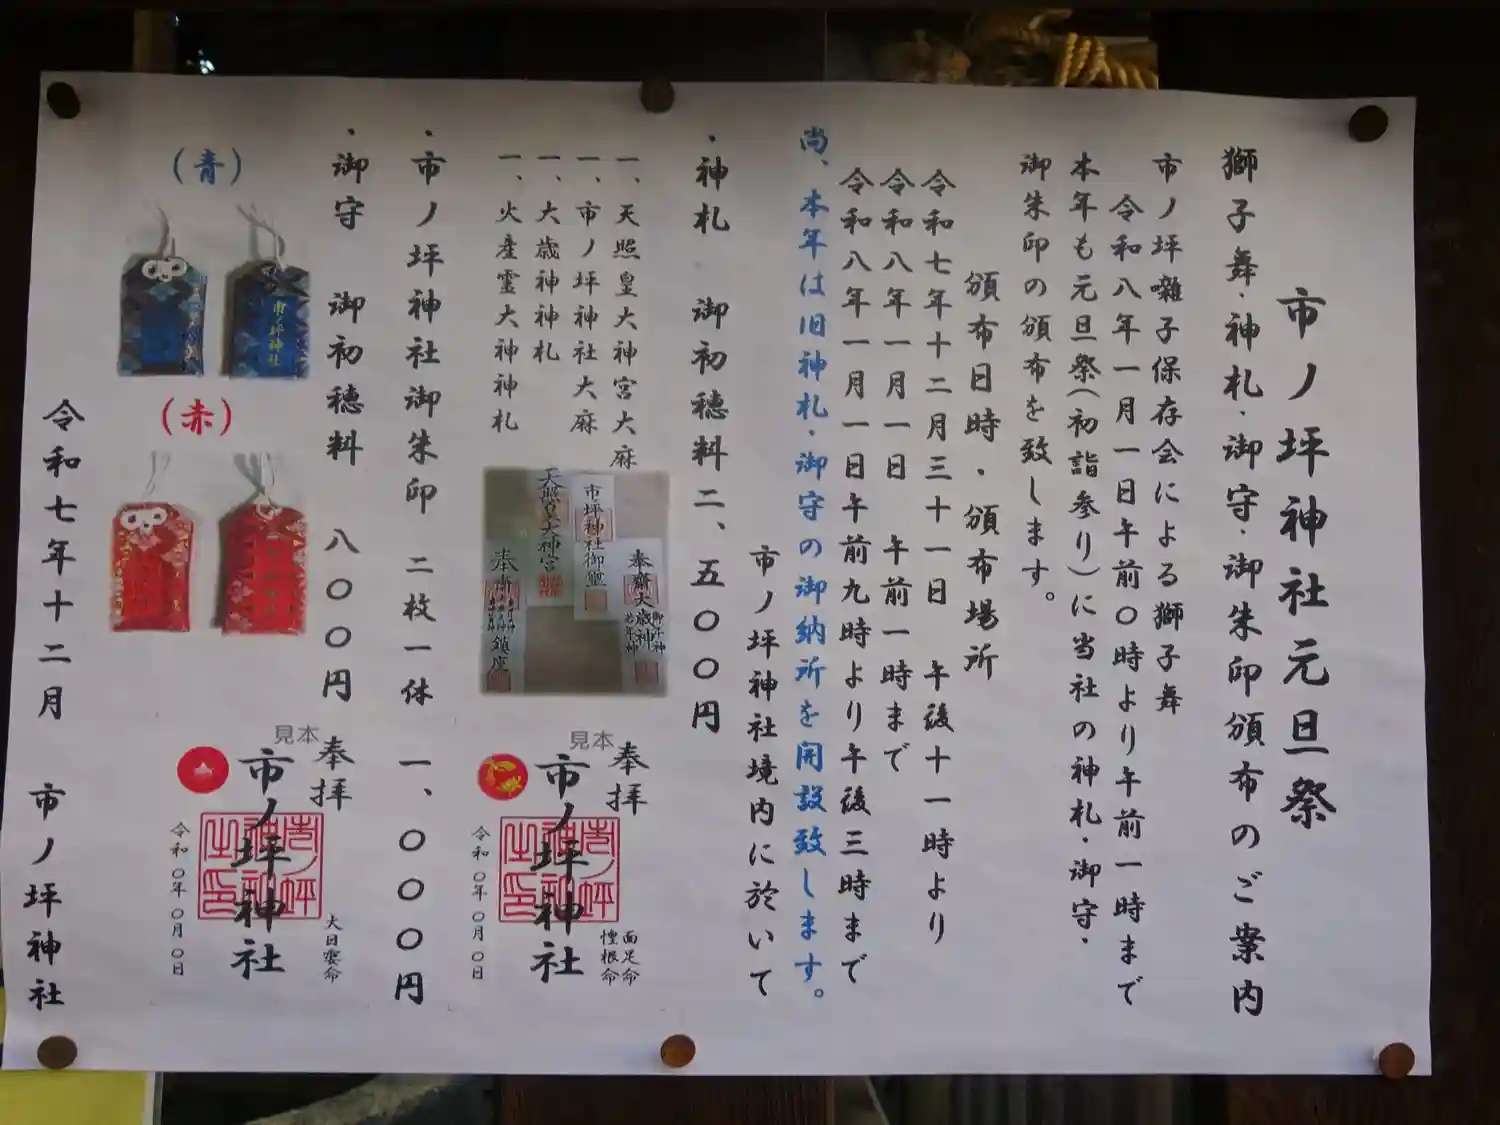 市ノ坪神社元旦祭
獅子舞・神札・御守・御朱印頒布のご案内
市ノ坪囃子保存会による獅子舞
令和八年一月一日午前〇時より午前一時まで
本年も元旦祭(初詣参り)に当社の神札・御守・
御朱印の頒布を致します。
頒布日時・頒布場所
令和七年十二月三十一日 午後十一時より
令和八年一月一日 午前一時まで
令和八年一月一日午前九時より午後三時まで
尚、本年は旧神札・御守の御納所を開設致します。
市ノ坪神社境内に於いて
・神札 御初穂料二、五〇〇円
一、天照皇大神宮大麻
一、市ノ坪神社大麻
一、大歳神神札
一、火産霊大神神札
奉齋大歳神
御年神
若年神
市坪神社御璽
天照皇大神宮
鎮座
見本
奉拝
市ノ坪神社
面足命
惶根命
令和〇年〇月〇日
・市ノ坪神社御朱印 二枚一体 一、〇〇〇円
見本
奉拝
市ノ坪神社
大日孁命
令和〇年〇月〇日
・御守 御初穂料 八〇〇円
(青)
市ノ坪神社
(赤)
令和七年十二月 市ノ坪神社